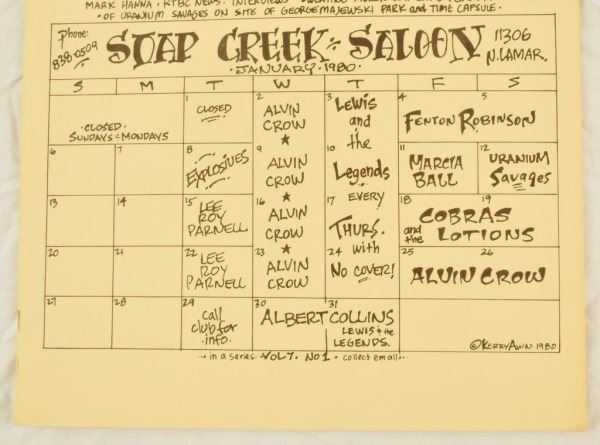 MARK HANNA · KTBC NEWS · INTERVIEWS
· OF URANIUM SAVAGES ON SITE OF GEORGE MAJEWSKI PARK and TIME CAPSULE ·
Phone: 838-0509
SOAP CREEK SALOON
11306 N. LAMAR.
· JANUARY · 1980 ·
S M T W T F S
· CLOSED · SUNDAYS & MONDAYS
1 CLOSED
2 ALVIN CROW
3 LEWIS and the
4 5 FENTON ROBINSON
6
7
8 EXPLOSIVES
9 ALVIN CROW
10 Legends
11 MARCIA BALL
12 URANIUM Savages
13
14
15 LEE ROY PARNELL
16 ALVIN CROW
17 EVERY THURS.
18 19 COBRAS and the LOTIONS
20
21
22 LEE ROY PARNELL
23 ALVIN CROW
24 with NO COVER!
25 26 ALVIN CROW
27
28
29 call club for · info ·
30 31 ALBERT COLLINS
LEWIS & the LEGENDS.
© KERRY AWN · 1980
··· in a series · VOL 7. NO 1 · collect em all ···